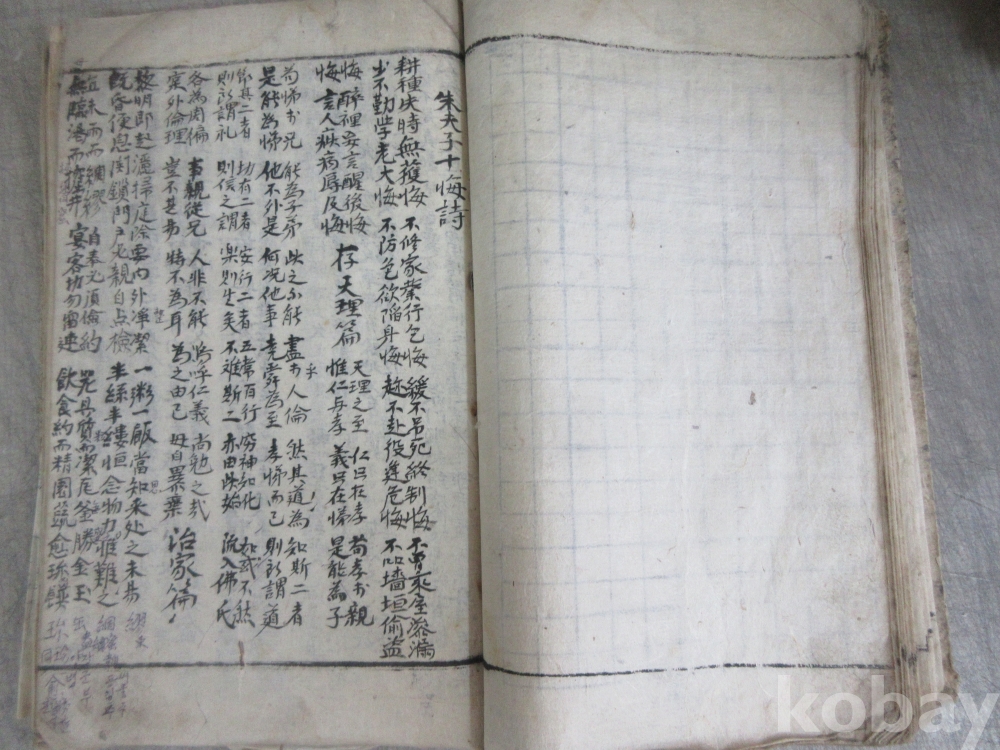 朱夫子十悔詩
耕種失時無獲悔 不修家業行乞悔 緩不吊死終制悔 不曾來屋滲漏
少不勤學老大悔 不防色欲陷身悔 趂不赴役逢危悔 不墻垣偷盜
悔 醉裡妄言醒後悔 存天理篇 天理之至 仁只在孝 苟孝於親
悔 言人疾病辱及悔 惟仁与孝 義只在悌 是能為子
苟悌於兄 能為子弟 此之不能 盡於人倫 然其道為 知斯二者
是能為悌 他不外是 何况他事 堯舜為至 孝悌而已 則所謂道
節其二者 切有二者 安行二者 五常百行 窮神知化 如或不然
則所謂礼 則信之謂 樂則生矣 不难斯二 亦由此始 流入佛氏
各為周偏 事親從兄 人非不能 嗚呼仁義 尚勉之哉
棄外倫理 豈不甚易 特不為耳 為之由己 毋自暴棄 治家篇
黎明即起灑掃庭除要内外淨潔 一粥一飯當知来处之未易
既昏便息関鎖門戶必親自点檢 半絲半縷恒念物力惟難之
宜未雨而綢繆 自奉必須儉約 器具質而潔瓦釜勝金玉
無臨渴而掘井 宴客切勿留連 飲食約而精園蔬愈珍饈
kobay